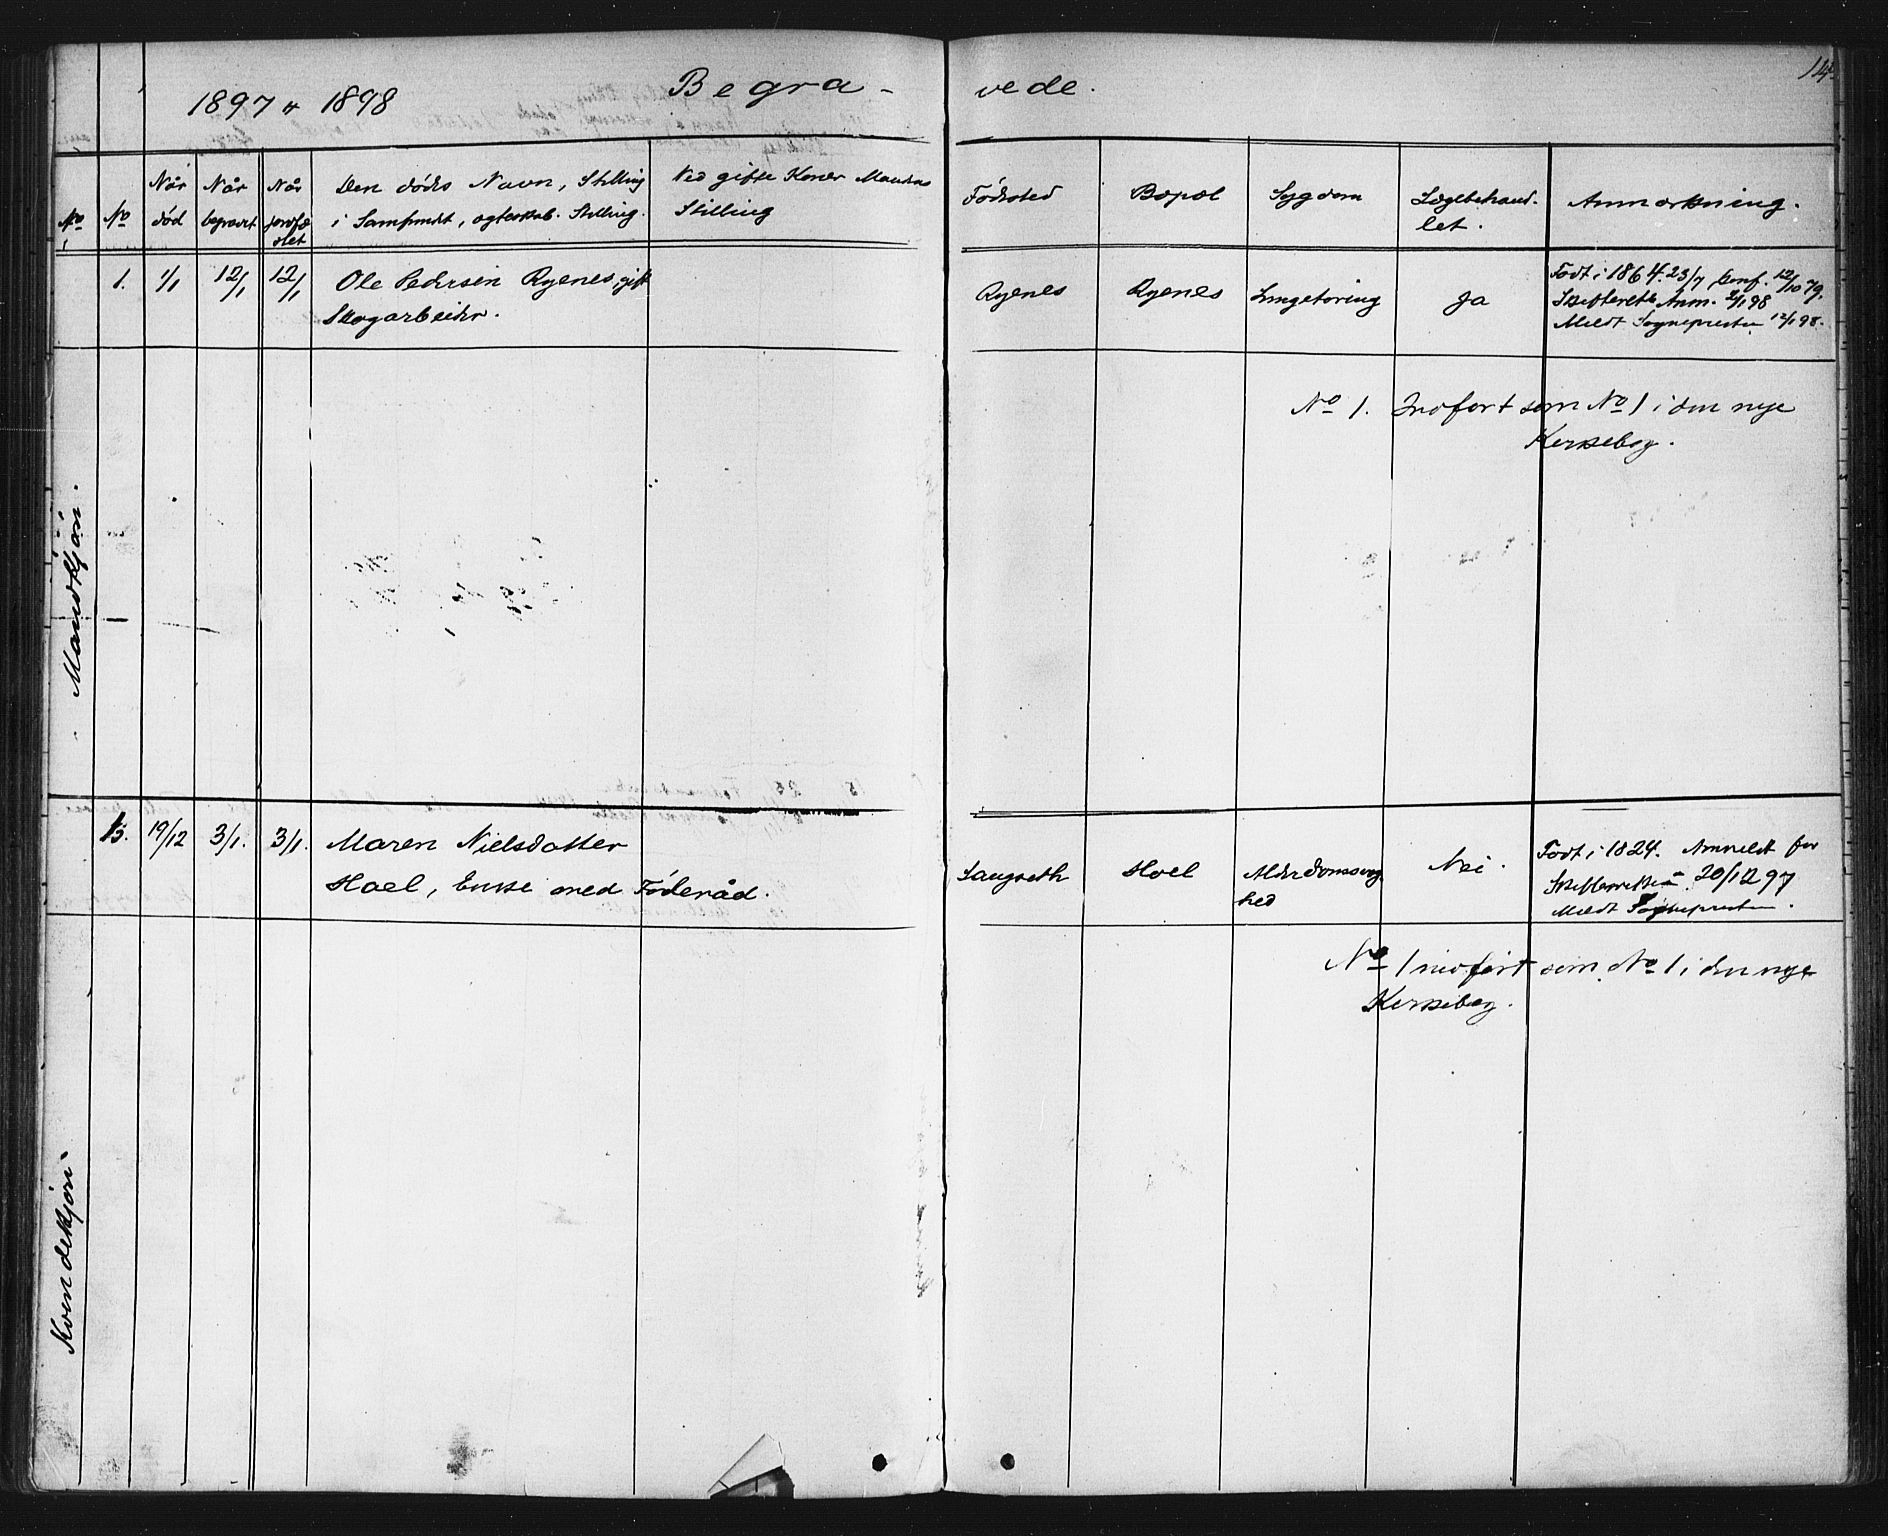 1897 & 1898
Begra-
vede.
No
No
Når død
Når begravet
Når jordfæstet
Den dødes Navn, Stilling
i Samfundet, ægteskab. Stilling.
Ved gifte Koner Mandens
Stilling
Fødested
Bopæl
Sygdom
Lægebehand-
let.
Anmærkning.
Mandkjøn.
1.
1/1
12/1
12/1
Ole Pedersen Ryenes, gift
Skogarbeider.
Ryenes
Ryenes
Lungetæring
Ja
Født i 1864. 23/7 Konf. 12/10 79.
Skifteret Anm. 98
Meldt Sognepresten 12/1 98.
No 1. Indført som No 1 i den nye
Kirkebog.
Kvendekjøn.
19/12
3/1.
3/1.
Maren Nielsdatter
Hoel, Enke med Føderåd.
Langseth
Hoel
Alderdomssvag-
hed
Nei.
Født i 1824. Anmeldt for
Skifteretten 20/12 97
Meldt Sognepresten.
No 1 indført som No 1 i den nye
Kirkebog.